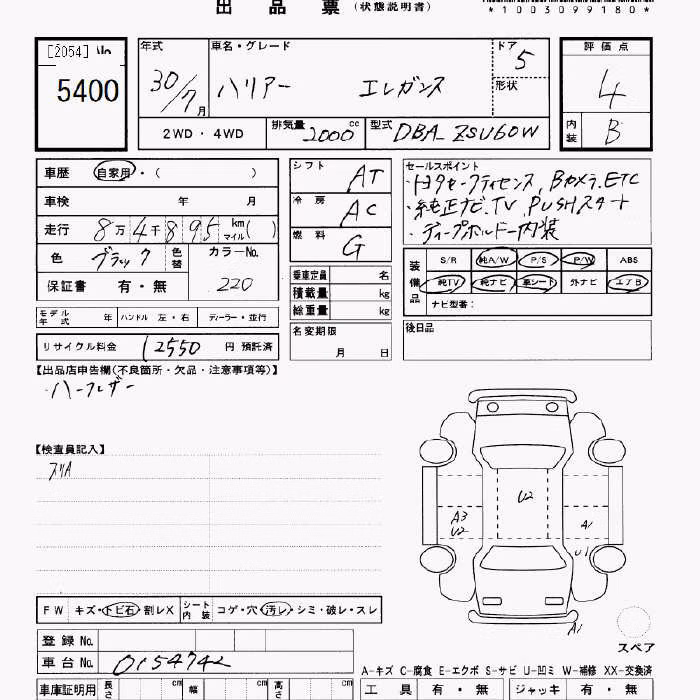 出品票 (状態説明書)
*1003099180*
[2054] No
5400
年式 30/7月
車名・グレード ハリアー エレガンス
ドア 5
形状
評価点 4
内装 B
2WD・4WD 排気量 2000 cc 型式 DBA ZSU60W
車歴 自家用・( )
車検 年 月
走行 8万4千895 km マイル( )
色 ブラック 色替 カラーNo. 220
保証書 有・無
シフト AT
冷房 AC
燃料 G
乗車定員 名
積載量 kg
総重量 kg
名変期限 月 日
セールスポイント
・トヨタセーフティセンス、Bカメラ.ETC
・純正ナビ.TV.PUSHスタート
・ディープボルドー内装
装備品 S/R 純A/W P/S P/W ABS
純TV 純ナビ 革シート 外ナビ エアB
ナビ型番:
モデル年式 年 ハンドル 左・右 ディーラー・並行
後日品
リサイクル料金 12550 円 預託済
【出品店申告欄(不良箇所・欠品・注意事項等)】
・ハーフレザー
【検査員記入】
スリA
U2
A3
U2
A1
U1
A1
スペア
FW キズ・トビ石・割レX シート内装 コゲ・穴・汚レ・シミ・破レ・スレ
登録No.
車台No. 0154742
A-キズ C-腐食 E-エクボ S-サビ U-凹ミ W-補修 XX-交換済
車庫証明用 長さ cm 幅 cm 高さ cm
工具 有・無 ジャッキ 有・無